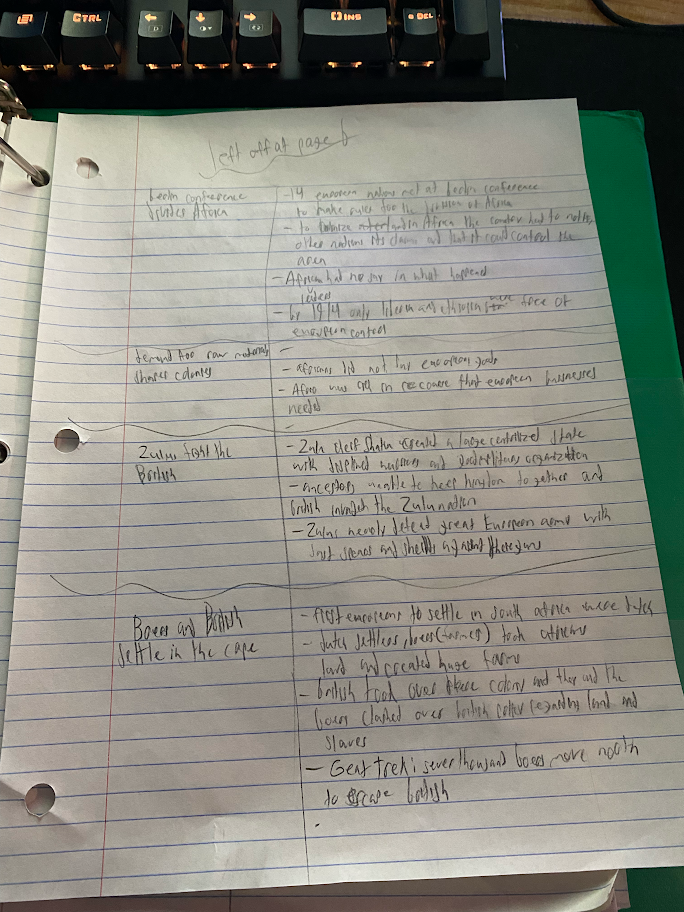 CTRL
INS
DEL
left off at page
berlin conference
divides Africa
- 14 european nations met at berlin conference
to make rules for the division of Africa
- to in Africa the country had to notify
other nations its claims and that it could control the
area
- African had no say in what happened
leaders
- by 1914 only liberia and ethiopia were free of
european control
demand for raw materials
shapes colonies
-
- africans did not buy european goods
- Africa was rich in that european businesses
needed
-
Zulus fight the
British
- Zulu cheif Shaka created a large centrilized state
with warriors and organization
- ancestors unable to keep kingdom to gether and
british invaded the Zulu nation
- Zulus nearly defeat great European army with
just spears and sheilds against guns
Boers and British
Settle in the cape
- first europeans to settle in south africa were dutch
- dutch settlers, boers (farmers) took africans
land and created huge farms
- british took over colony and they and the
boers clashed over british regarding land and
slaves
- Great Trek: thousand boers move north
to escape british